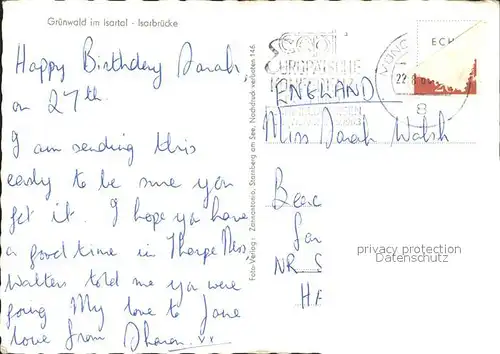 Grünwald im Isartal - Isarbrücke
Happy Birthday Sarah,
on 27th.
I am sending this
early to be sure you
get it. I hope you have
a good time in Thorpe Ness,
Walter told me you were
going My love to Jane
love from Sharon. xx
Foto-Verlag: Zannantonio, Starnberg am See, Nachdruck verboten 146
EUROPÄISCHE
MÜNC
22.8.
8
ECH
ENGLAND
Miss Sarah Walsh
Beac
NR S
privacy protection
Datenschutz